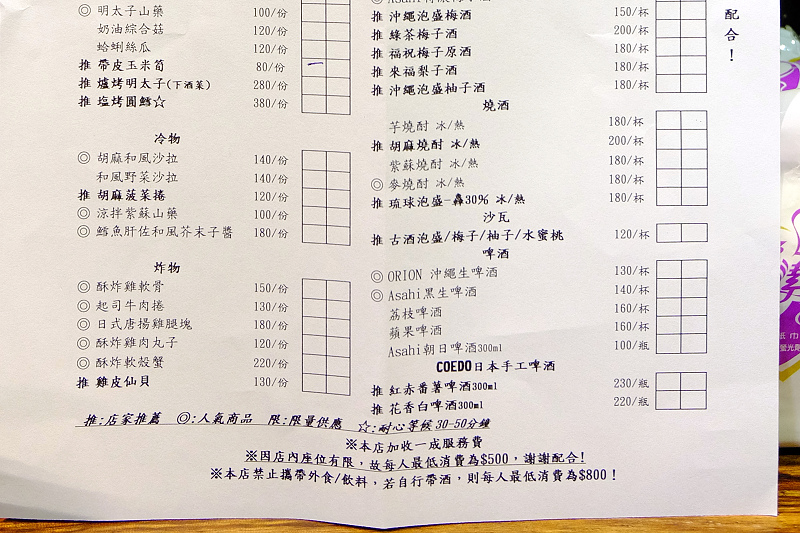 ◎ 明太子山藥 100/份
奶油綜合菇 120/份
蛤蜊絲瓜 120/份
推 帶皮玉米筍 80/份
推 爐烤明太子(下酒菜) 280/份
推 塩烤圓鱈☆ 380/份
冷物
◎ 胡麻和風沙拉 140/份
和風野菜沙拉 140/份
推 胡麻菠菜捲 120/份
◎ 涼拌紫蘇山藥 100/份
◎ 鱈魚肝佐和風芥末子醬 180/份
炸物
◎ 酥炸雞軟骨 150/份
◎ 起司牛肉捲 130/份
◎ 日式唐揚雞腿塊 180/份
◎ 酥炸雞肉丸子 120/份
◎ 酥炸軟殼蟹 220/份
推 雞皮仙貝 130/份
推 沖繩泡盛梅酒 150/杯
推 綠茶梅子酒 200/杯
推 福祝梅子原酒 180/杯
推 來福梨子酒 180/杯
推 沖繩泡盛柚子酒 180/杯
燒酒
芋燒酎 冰/熱 180/杯
推 胡麻燒酎 冰/熱 200/杯
紫蘇燒酎 冰/熱 180/杯
◎ 麥燒酎 冰/熱 180/杯
推 琉球泡盛-轟30% 冰/熱 180/杯
沙瓦
推 古酒泡盛/梅子/柚子/水蜜桃 120/杯
啤酒
◎ ORION 沖繩生啤酒 130/杯
◎ Asahi黑生啤酒 140/杯
荔枝啤酒 160/杯
蘋果啤酒 160/杯
Asahi朝日啤酒300ml 100/瓶
COEDO日本手工啤酒
推 紅赤番薯啤酒300ml 230/瓶
推 花香白啤酒300ml 220/瓶
配合！
推:店家推薦 ◎:人氣商品 限:限量供應 ☆:耐心等候30-50分鐘
※本店加收一成服務費
※因店內座位有限，故每人最低消費為$500，謝謝配合!
※本店禁止攜帶外食/飲料，若自行帶酒，則每人最低消費為$800！